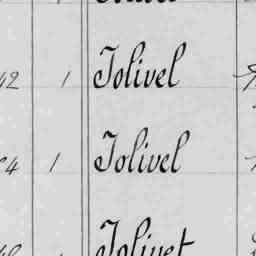 42 1 Jolivel
4 1 Jolivel
Jolivet